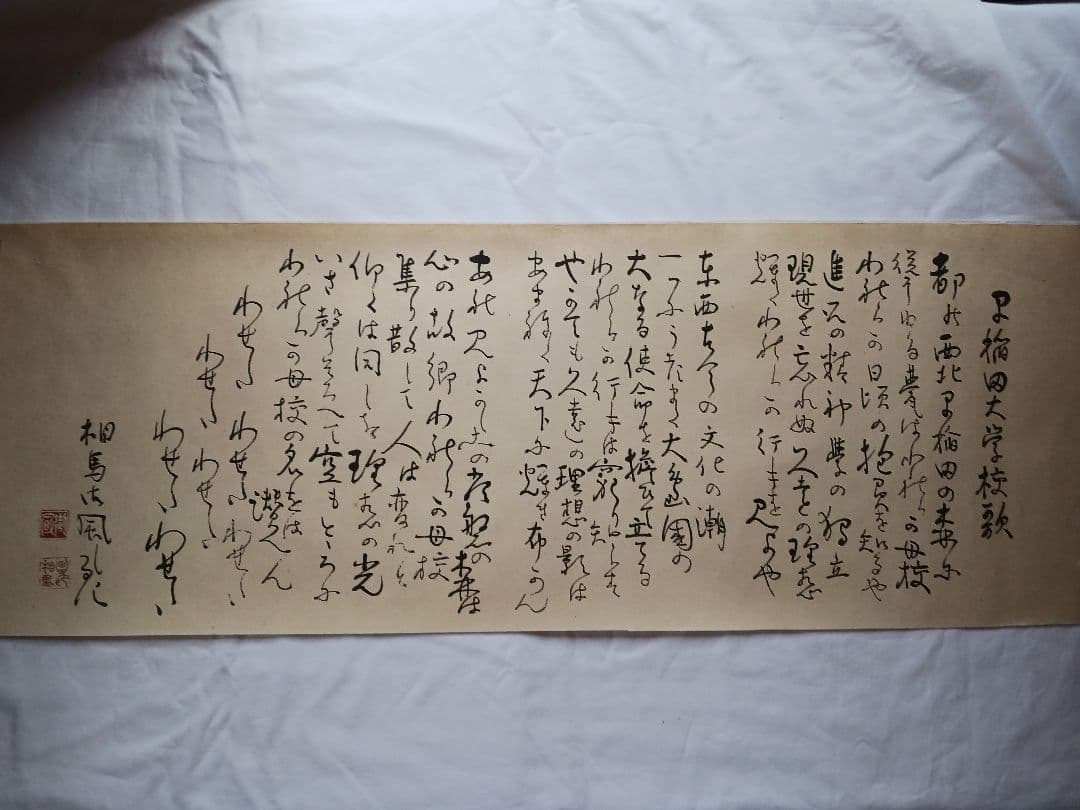 早稲田大学校歌
都の西北早稲田の森に
聳ゆる甍はわれらか母校
われらか日頃の抱負を知るや
進取の精神学の独立
現世を忘れぬ久遠の理想
輝くわれらか行手を見よや
東西古今の文化の潮
一つにうつまく大島國の
大なる使命を擔ひて立てる
われらか行手は窮り知らす
やかても久遠の理想の影は
あまねく天下に輝き布かん
あれ見よかしこの常磐の森は
心の故郷われらか母校
集り散して人は変れと
仰くは同しき理想の光
いさ聲そろへて空もとゝろに
われらか母校の名をは讃へん
わせたゝ わせたゝ わせたゝ
わせたゝ わせたゝ
わせたゝ わせたゝ
相馬御風